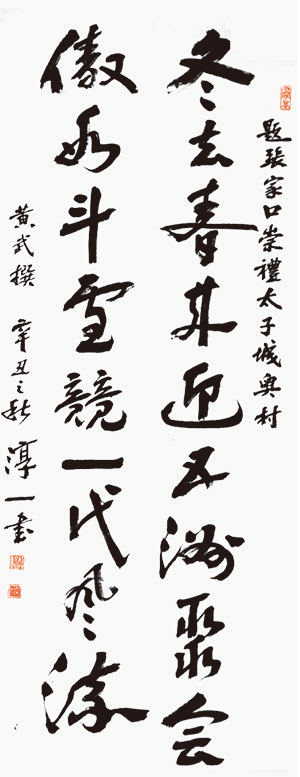 題張家口崇禮太子城奥村
冬去春来迎五洲聚会
傲冰斗雪競一代风流
黄武撰 辛丑之秋 淳一书